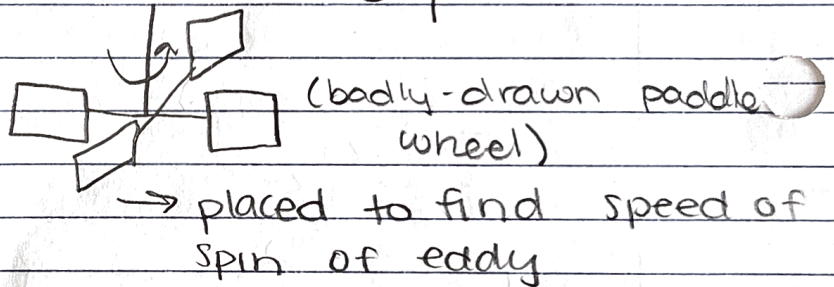 (badly-drawn paddle
wheel)
→ placed to find speed of
spin of eddy